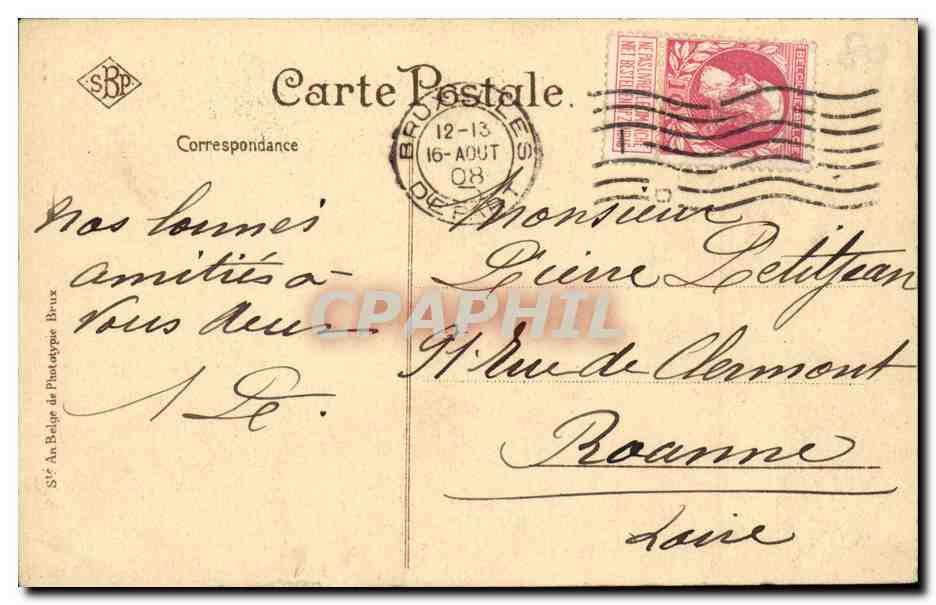 SBP
Carte Postale.
Correspondance
BRUXELLES
12-13
16-AOUT
08
DEPART
BELGIQUE
NE PAS LIVRER LE DIMANCHE
NIET BESTELLEN OP ZONDAG
Nos bonnes
amitiés à
vous deux
Monsieur
Pierre Petitjean
91. Rue de Clermont
Roanne
Loire
Sté An Belge de Phototypie Brux
CPAPHIL